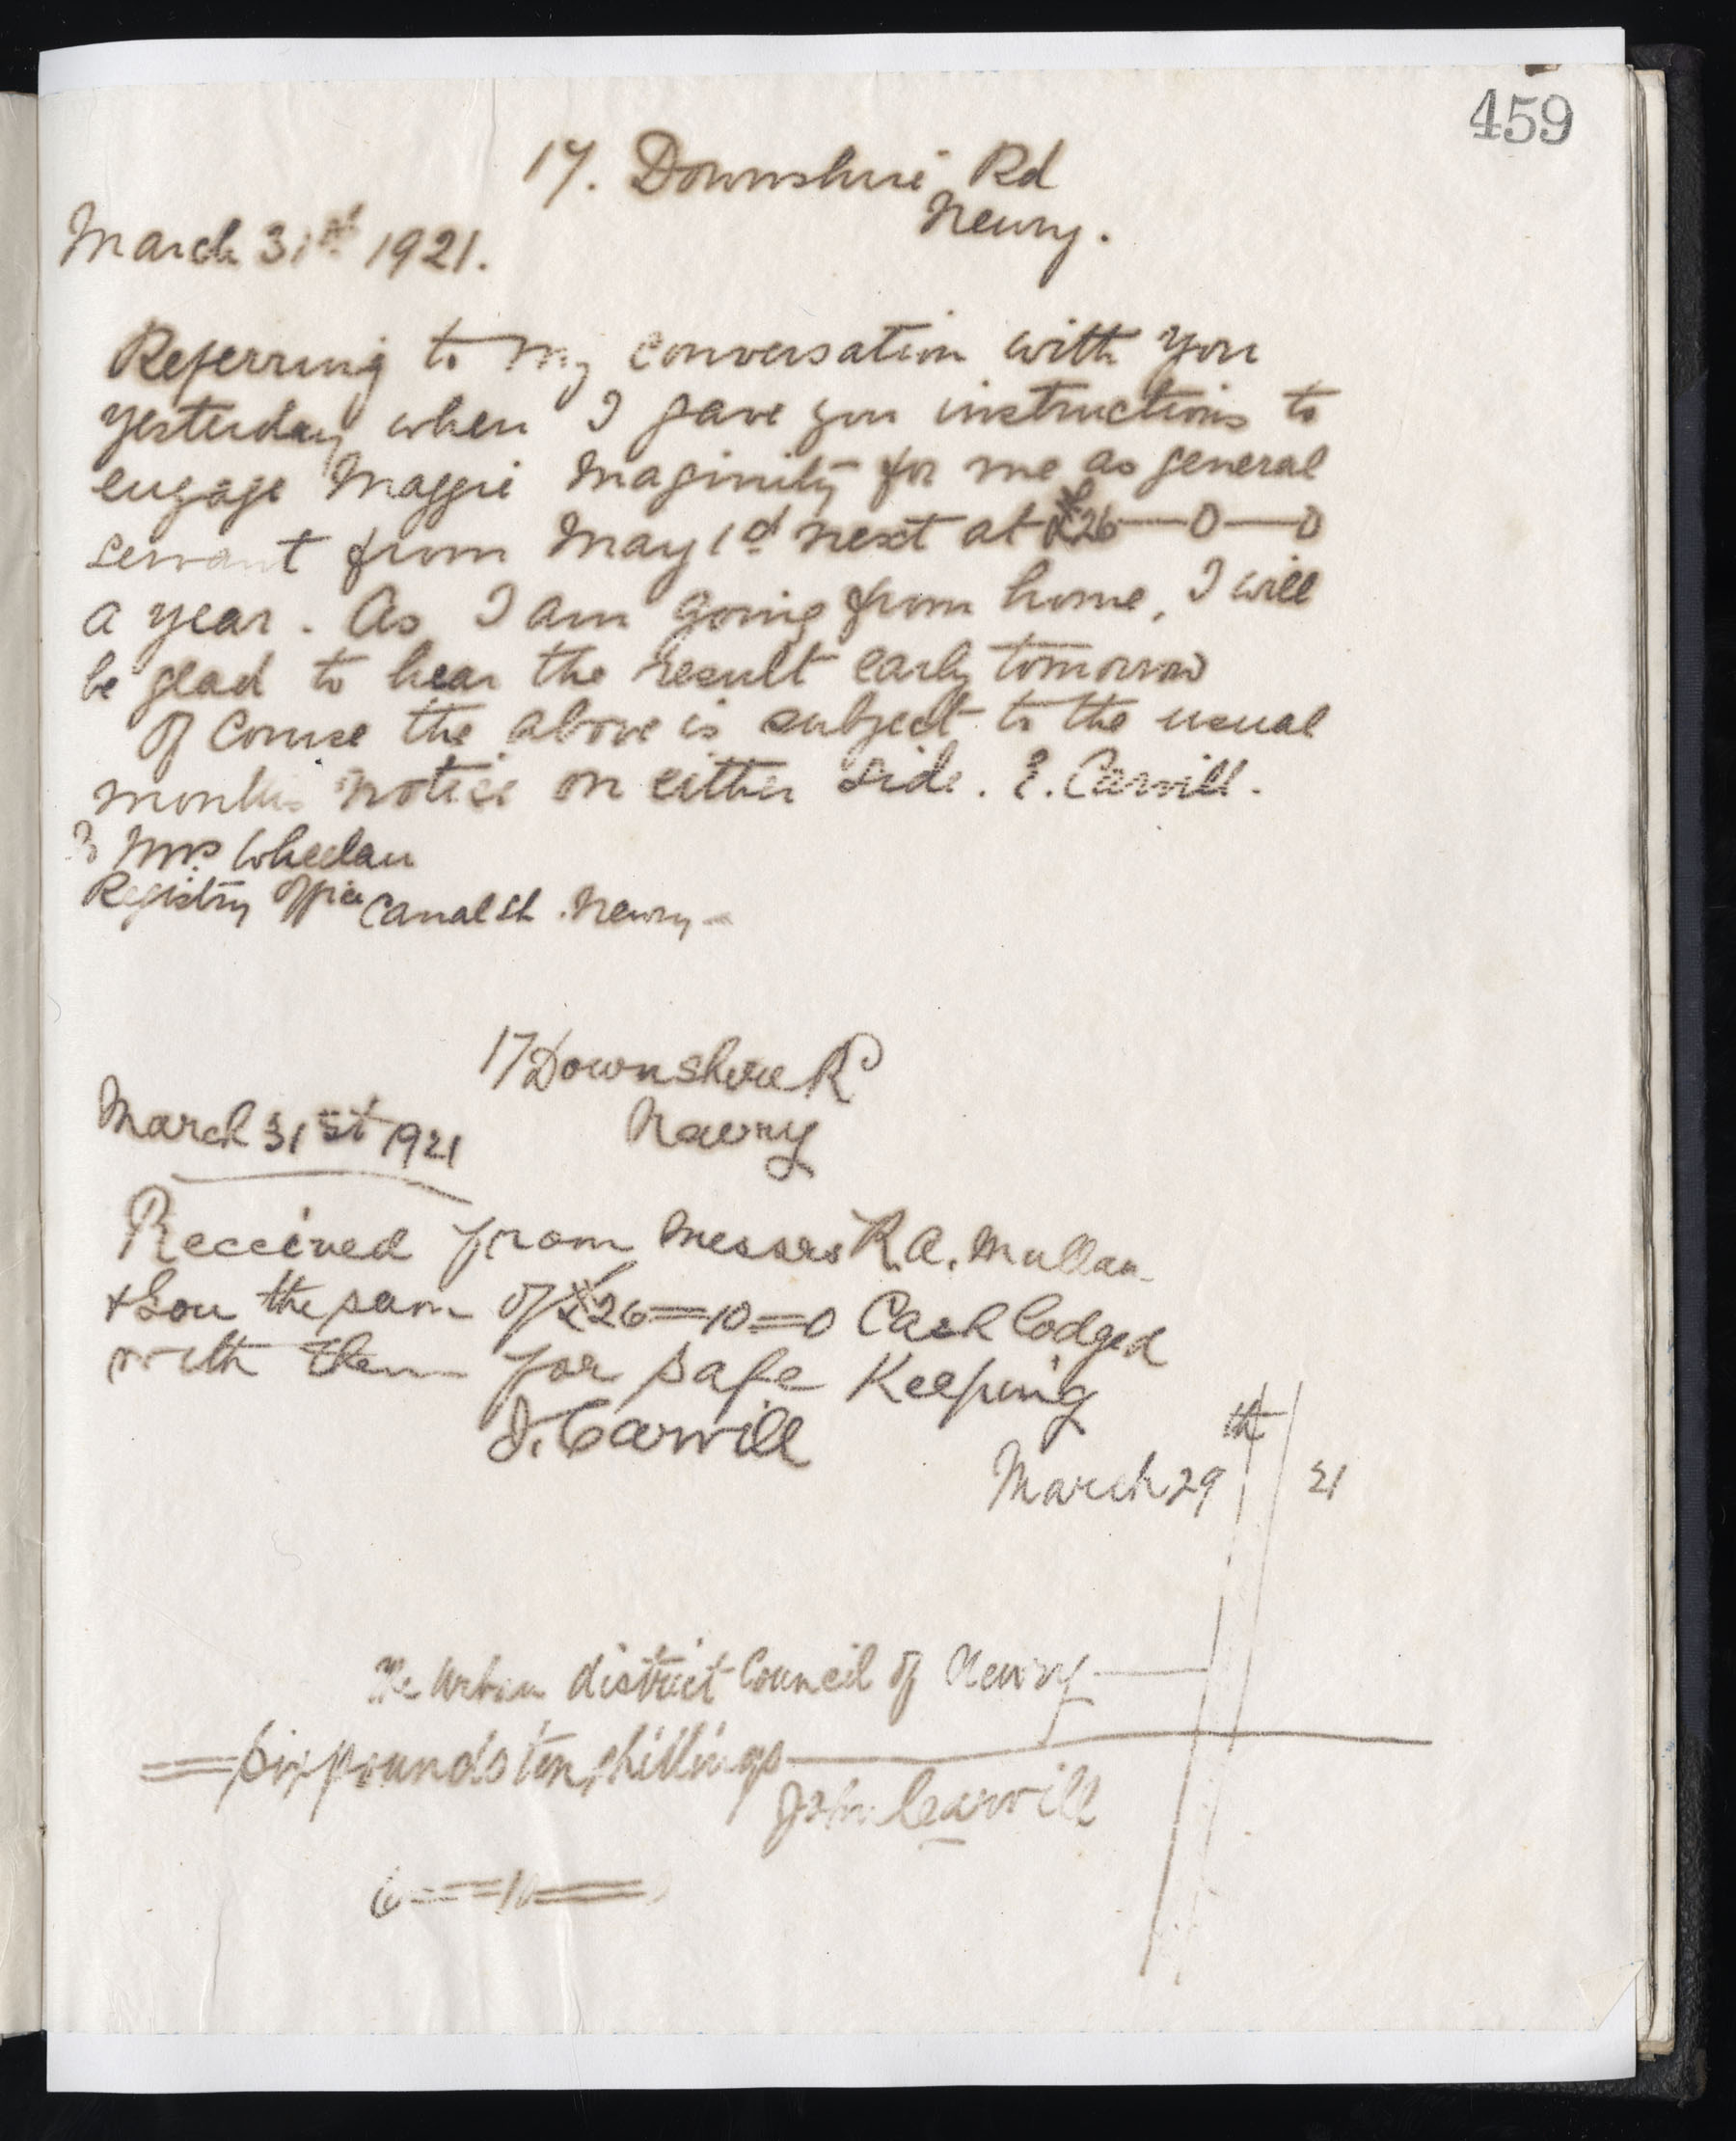 459
17. Downshire Rd
Newry.
March 31st 1921.
Referring to my conversation with you
yesterday when I gave you instructions to
engage Maggie Maginity for me as general
servant from May 1st next at £26—0—0
a year. As I am going from home, I will
be glad to hear the result early tomorrow
Of Course the above is subject to the usual
months notice on either side. E. Carvill.
Mrs. Whelan
Registry Office Canal St. Newry
17 Downshire Rd
Newry
March 31st 1921
Received from Messrs R. A. Mullan
& Son the sum of £26=10=0 Cash lodged
with them for safe Keeping
J. Carvill
March 29th 21
The Urban district Council of Newry
Six pounds ten shillings
John Carvill
6==10==